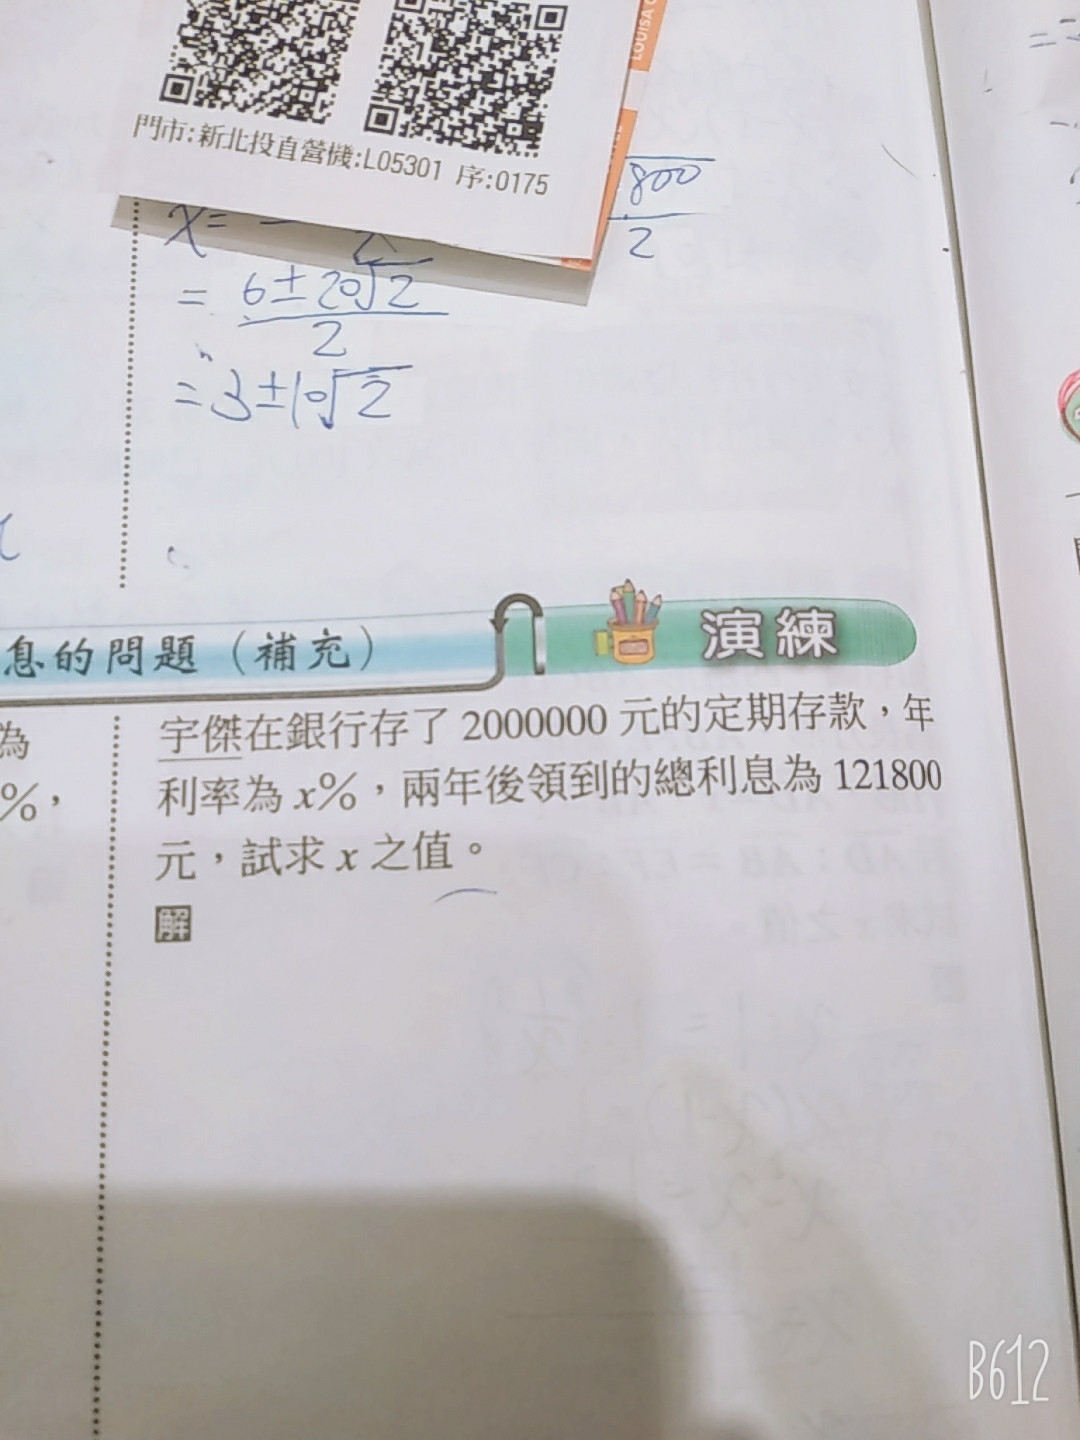 LOUISA C
門市:新北投直營機:L05301 序:0175
800
2
x= −
2
= 6±20√2
2
=3±10√2
息的問題（補充）
演練
為
%，
宇傑在銀行存了 2000000 元的定期存款，年
利率為 x%，兩年後領到的總利息為 121800
元，試求 x 之值。
解
B612